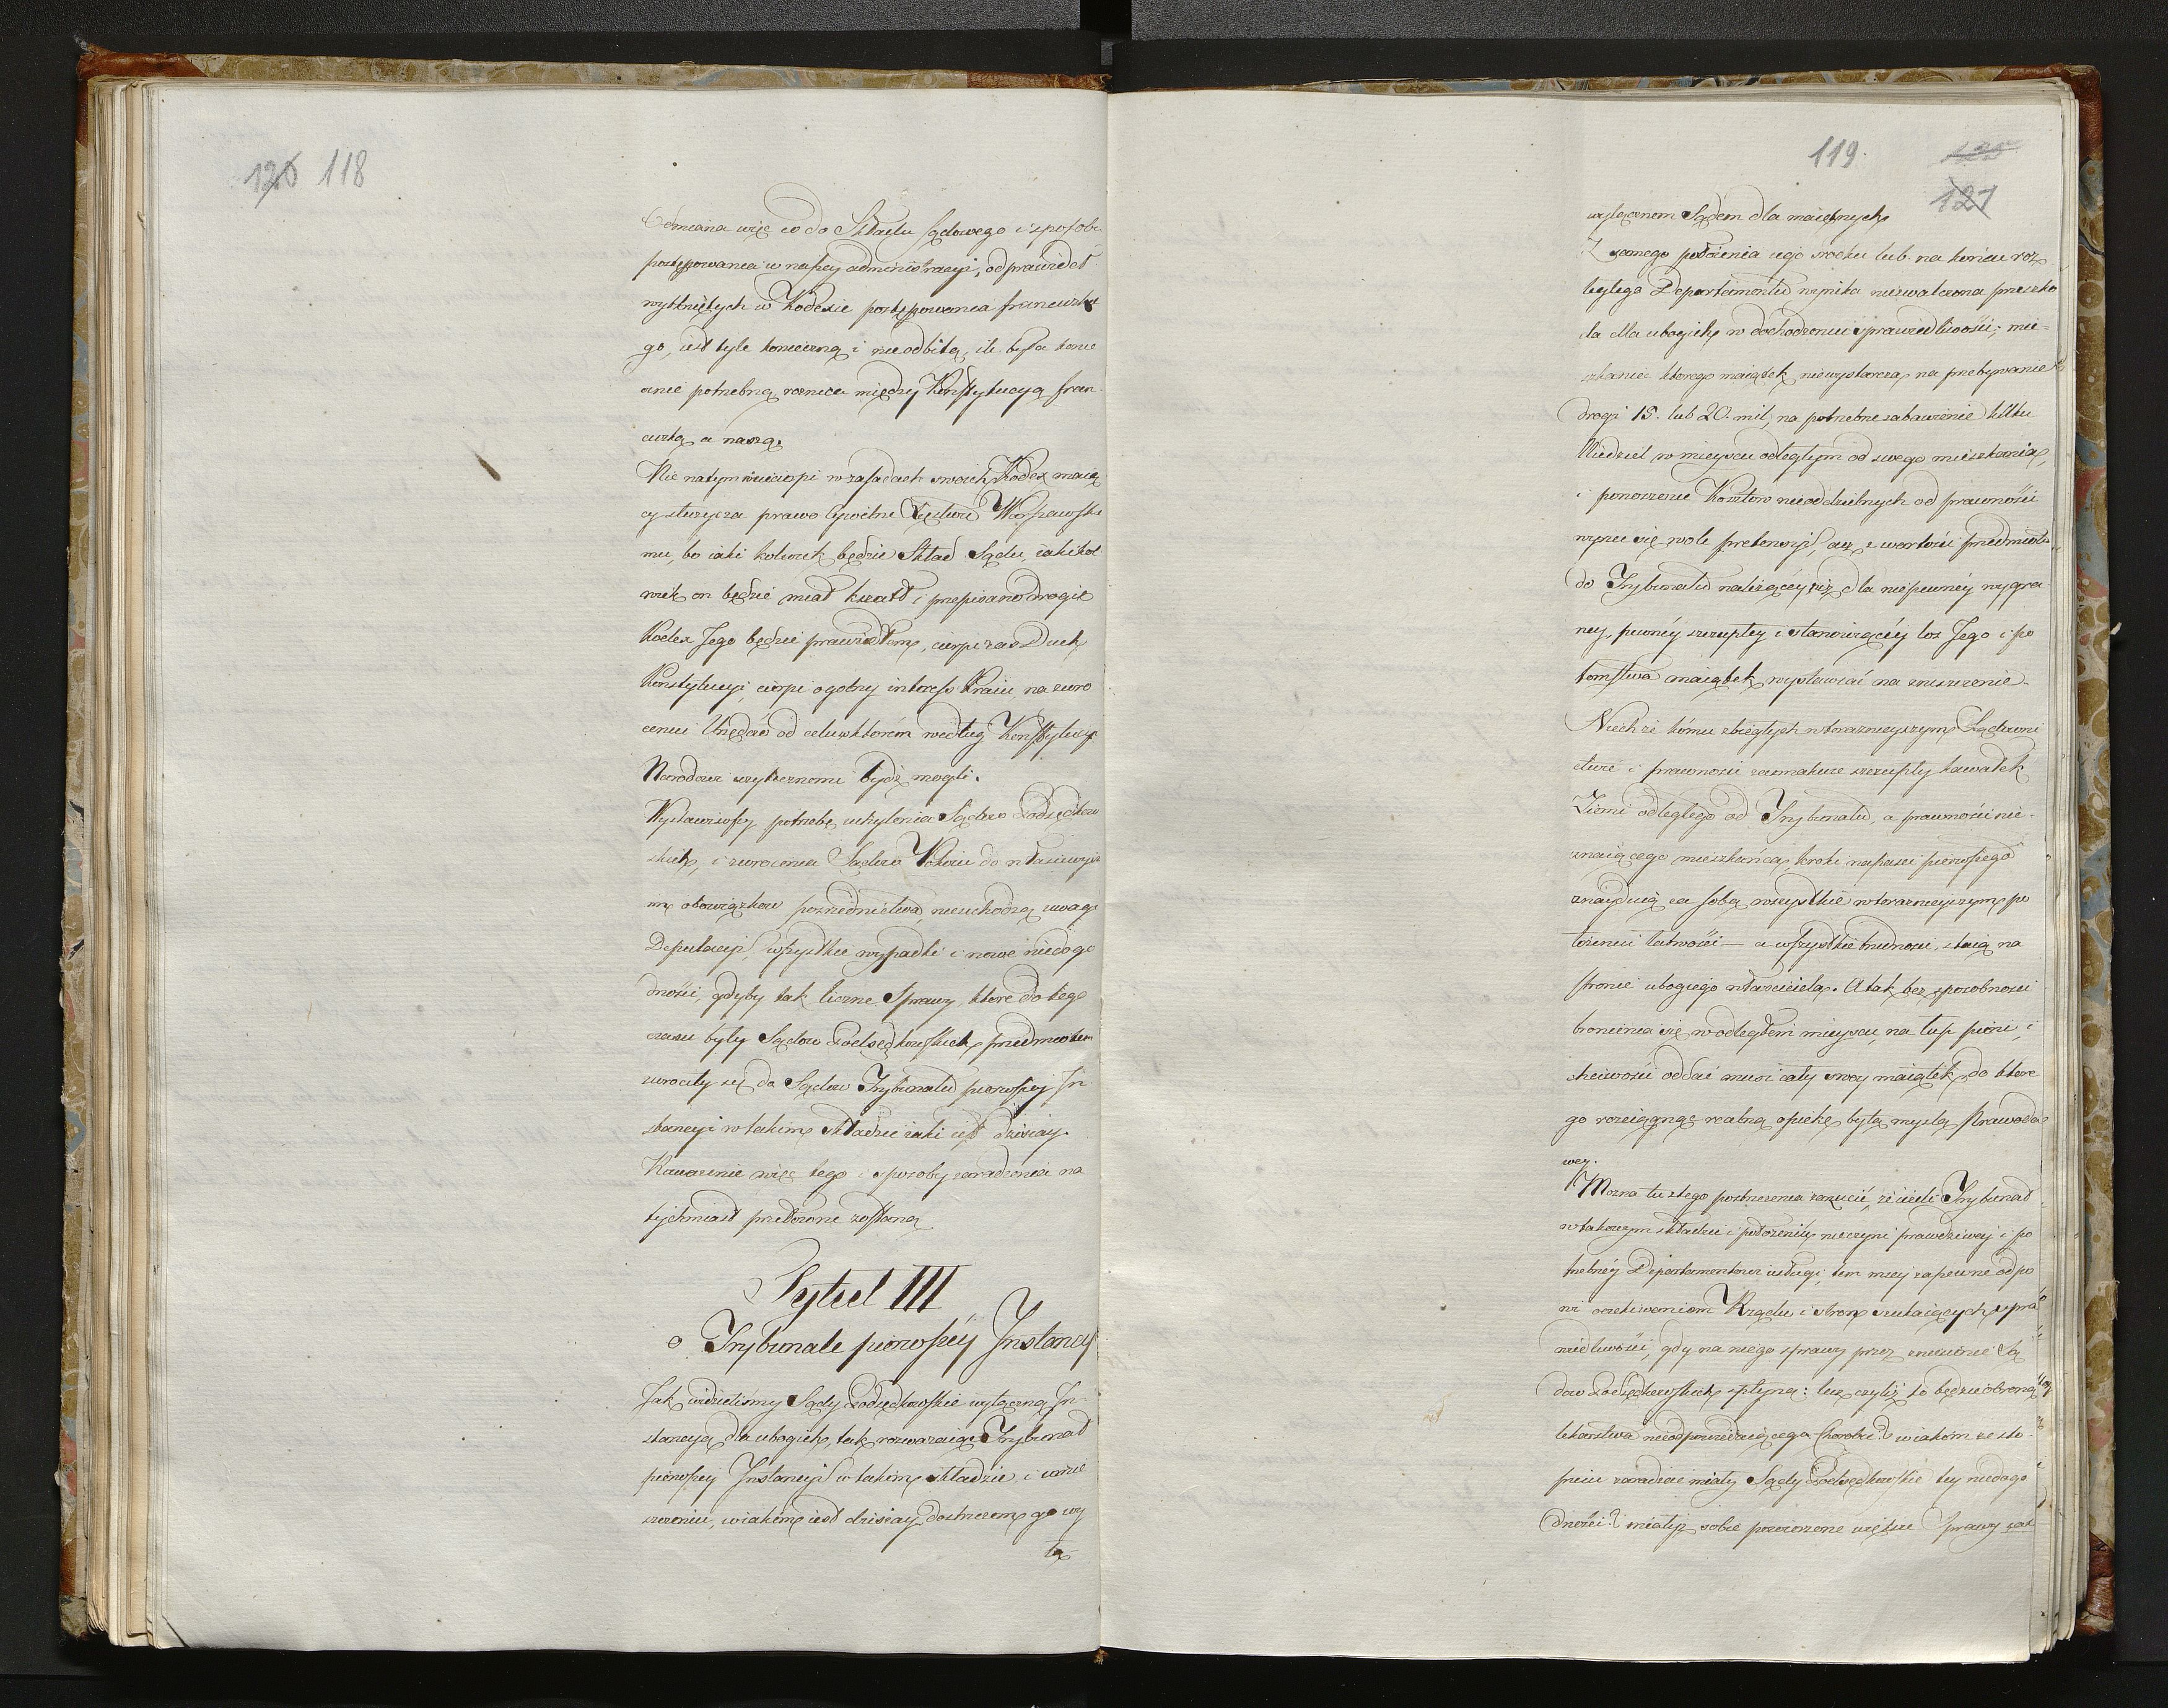 126 118
Odmiana więc co do Składu sądowego i sposobu
postępowania w naszey administracyi, od prawideł
wytkniętych w Kodexie postępowania francuzkie
go, iest tyle konieczną i nieodbitą, ile była konie
cznie potrzebną roznica między Konstytucyą fran
cuzką a naszą.
Nic natym nieucierpi w zasadach swoich Kodex maią
cy służyć za prawo cywilne Xięstwu Warszawskie
mu, bo iaki kolwiek będzie Skład Sądu, iakikol
wiek on będzie miał kształt i przepisane drogi
Kodex Jego będzie prawidłem, cierpi zaś Duch
Konstytucyi, cierpi ogolny interess Kraiu, na zwro
ceniu Urzędów od celu w którem według Konstytucyi
Narodowi użytecznemi bydź mogli.
Wystawiwszy potrzebę uchylenia Sądów Podsędkow
skich, i zwrocenia Sądow Pokoiu do właściwych
im obowiązkow posrednictwa, nieuchodzą uwagi
Deputacyi, wszystkie wypadki i nowe niedogo
dności, gdyby tak liczne Sprawy, ktore do tego
czasu były Sądow Podsędkowskich przedmiotem
zwrociły się do Sądow Trybunału pierwszey In
stancyi w takim składzie iaki iest dzisiay.
Rozważenie więc tego i sposoby zaradzenia na
tychmiast przełożone zostaną
Tytuł III
o Trybunale pierwszéy Instancyi
Jak widzieliśmy Sądy Podsędkowskie wyłączną In-
stancyą dla ubogich, tak rozważaiąc Trybunał
pierwszey Instancyi w takim składzie i umie
szczeniu, w iakim iest dzisiay dostrzeżem go wy
łą-
119. 125
127
wyłącznem Sądem dla maiętnych
Z samego położenia iego srodku lub na końcu roz
ległego Departamentu wynika niezwalczona przeszko
da dla ubogich w dochodzeniu sprawiedliwości; mie=
szkaniec ktorego maiątek niewystarcza na przebywanie
drogi 15. lub 20. mil, na potrzebne zabawienie kilku
Niedziel w mieyscu odległym od swego mieszkania,
i ponoszenie Kosztów nieoddzielnych od prawności
wyrzec się woli pretensyi, acz z wartości przedmiotu
do Trybunału należącéy, niż dla niepewnéy wygra
ney, pewnéy szczupłey i stanowiącéy los Jego i po
tomstwa maiątek wystawiać na zniszczenie.
Niech że komu z biegłych w teraznieyszym Sądowni
ctwie i prawności zasmakuie szczupły kawałek
Ziemi odległego od Trybunału, a prawności nie-
znaiącego mieszkańca, kroki napaści pierwszego
znayduią za sobą wszystkie w teraznieyszym po
łożeniu łatwości — a wszystkie trudności, staią na
stronie ubogiego właściciela. A tak bez sposobności
bronienia się w odległem mieyscu, na łup pieni, i
chciwości oddać musi cały swoy maiątek, do ktore
go rozciągnąć realną opiekę było myslą Prawoda
wcy.
Mozna tu z tego postrzeżenia zarzucić, że ieżeli Trybunał
w takowym składzie i położeniu nieczyni prawdziwey i po
trzebnéy Departamentowi usługi, tem mniey zapewne odpo
wi oczekiwaniom Rządu i stron szukaiących spra
wiedliwości, gdy na niego sprawy przez zniesienie Są
dow Podsędkowskich spłyną: lecz czyliż to będzie obroną
lekarstwa nieodpowiedziaiącego Chorobie? w iakim że sto-
pniu zaradzać miały Sądy Podsędkowskie tey niedogo
dności? miałyż sobie powierzone większe Sprawy iak